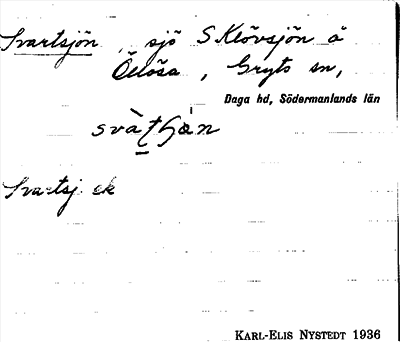 Svartsjön, sjö S Klövsjön å
Ölösa, Gryts sn,
Daga hd, Södermanlands län
Svartsj. ek
KARL-ELIS NYSTEDT 1936